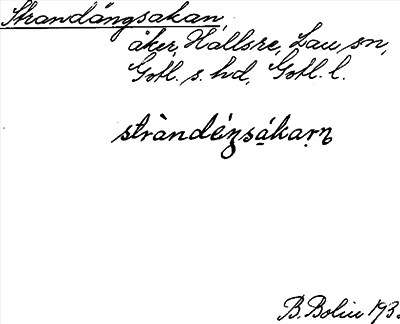 Strandängsakan,
åker, Hallsre, Lau sn,
Gotl. s. hd, Gotl. l.
stràndéŋsákaṛn
B. Bolin 193.